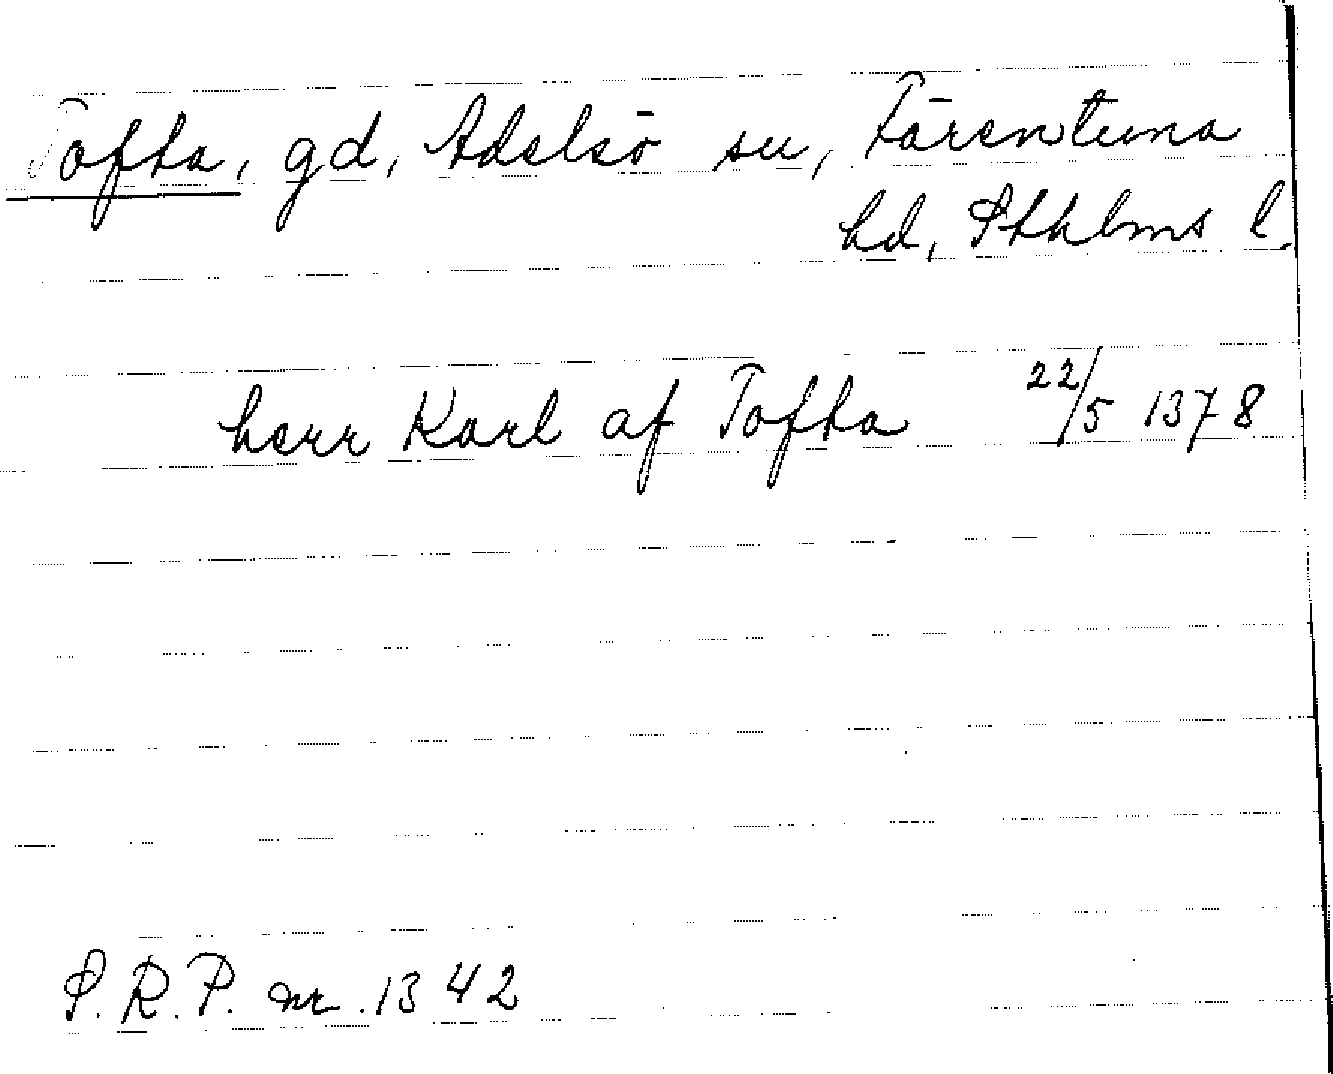 Tofta, gd, Adelsö sn, Färentuna
hd, Sthlms l.
herr Karl af Tofta 22/5 1378
S.R.P. nr. 1342